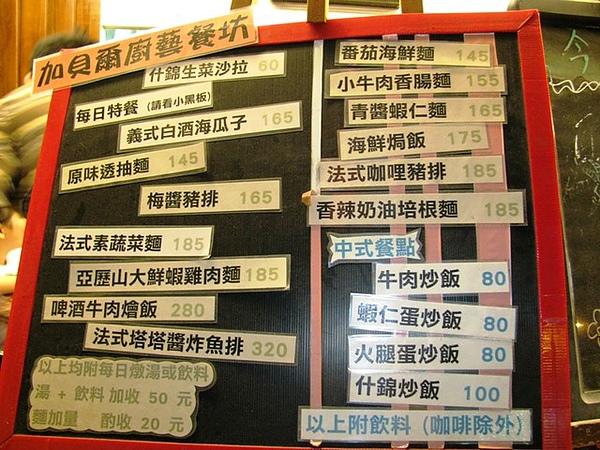 加貝爾廚藝餐坊
什錦生菜沙拉 60
每日特餐 (請看小黑板)
義式白酒海瓜子 165
原味透抽麵 145
梅醬豬排 165
法式素蔬菜麵 185
亞歷山大鮮蝦雞肉麵 185
啤酒牛肉燴飯 280
法式塔塔醬炸魚排 320
以上均附每日燉湯或飲料
湯 + 飲料 加收 50 元
麵加量 酌收 20 元
番茄海鮮麵 145
小牛肉香腸麵 155
青醬蝦仁麵 165
海鮮焗飯 175
法式咖哩豬排 185
香辣奶油培根麵 185
中式餐點
牛肉炒飯 80
蝦仁蛋炒飯 80
火腿蛋炒飯 80
什錦炒飯 100
以上附飲料 (咖啡除外)
今